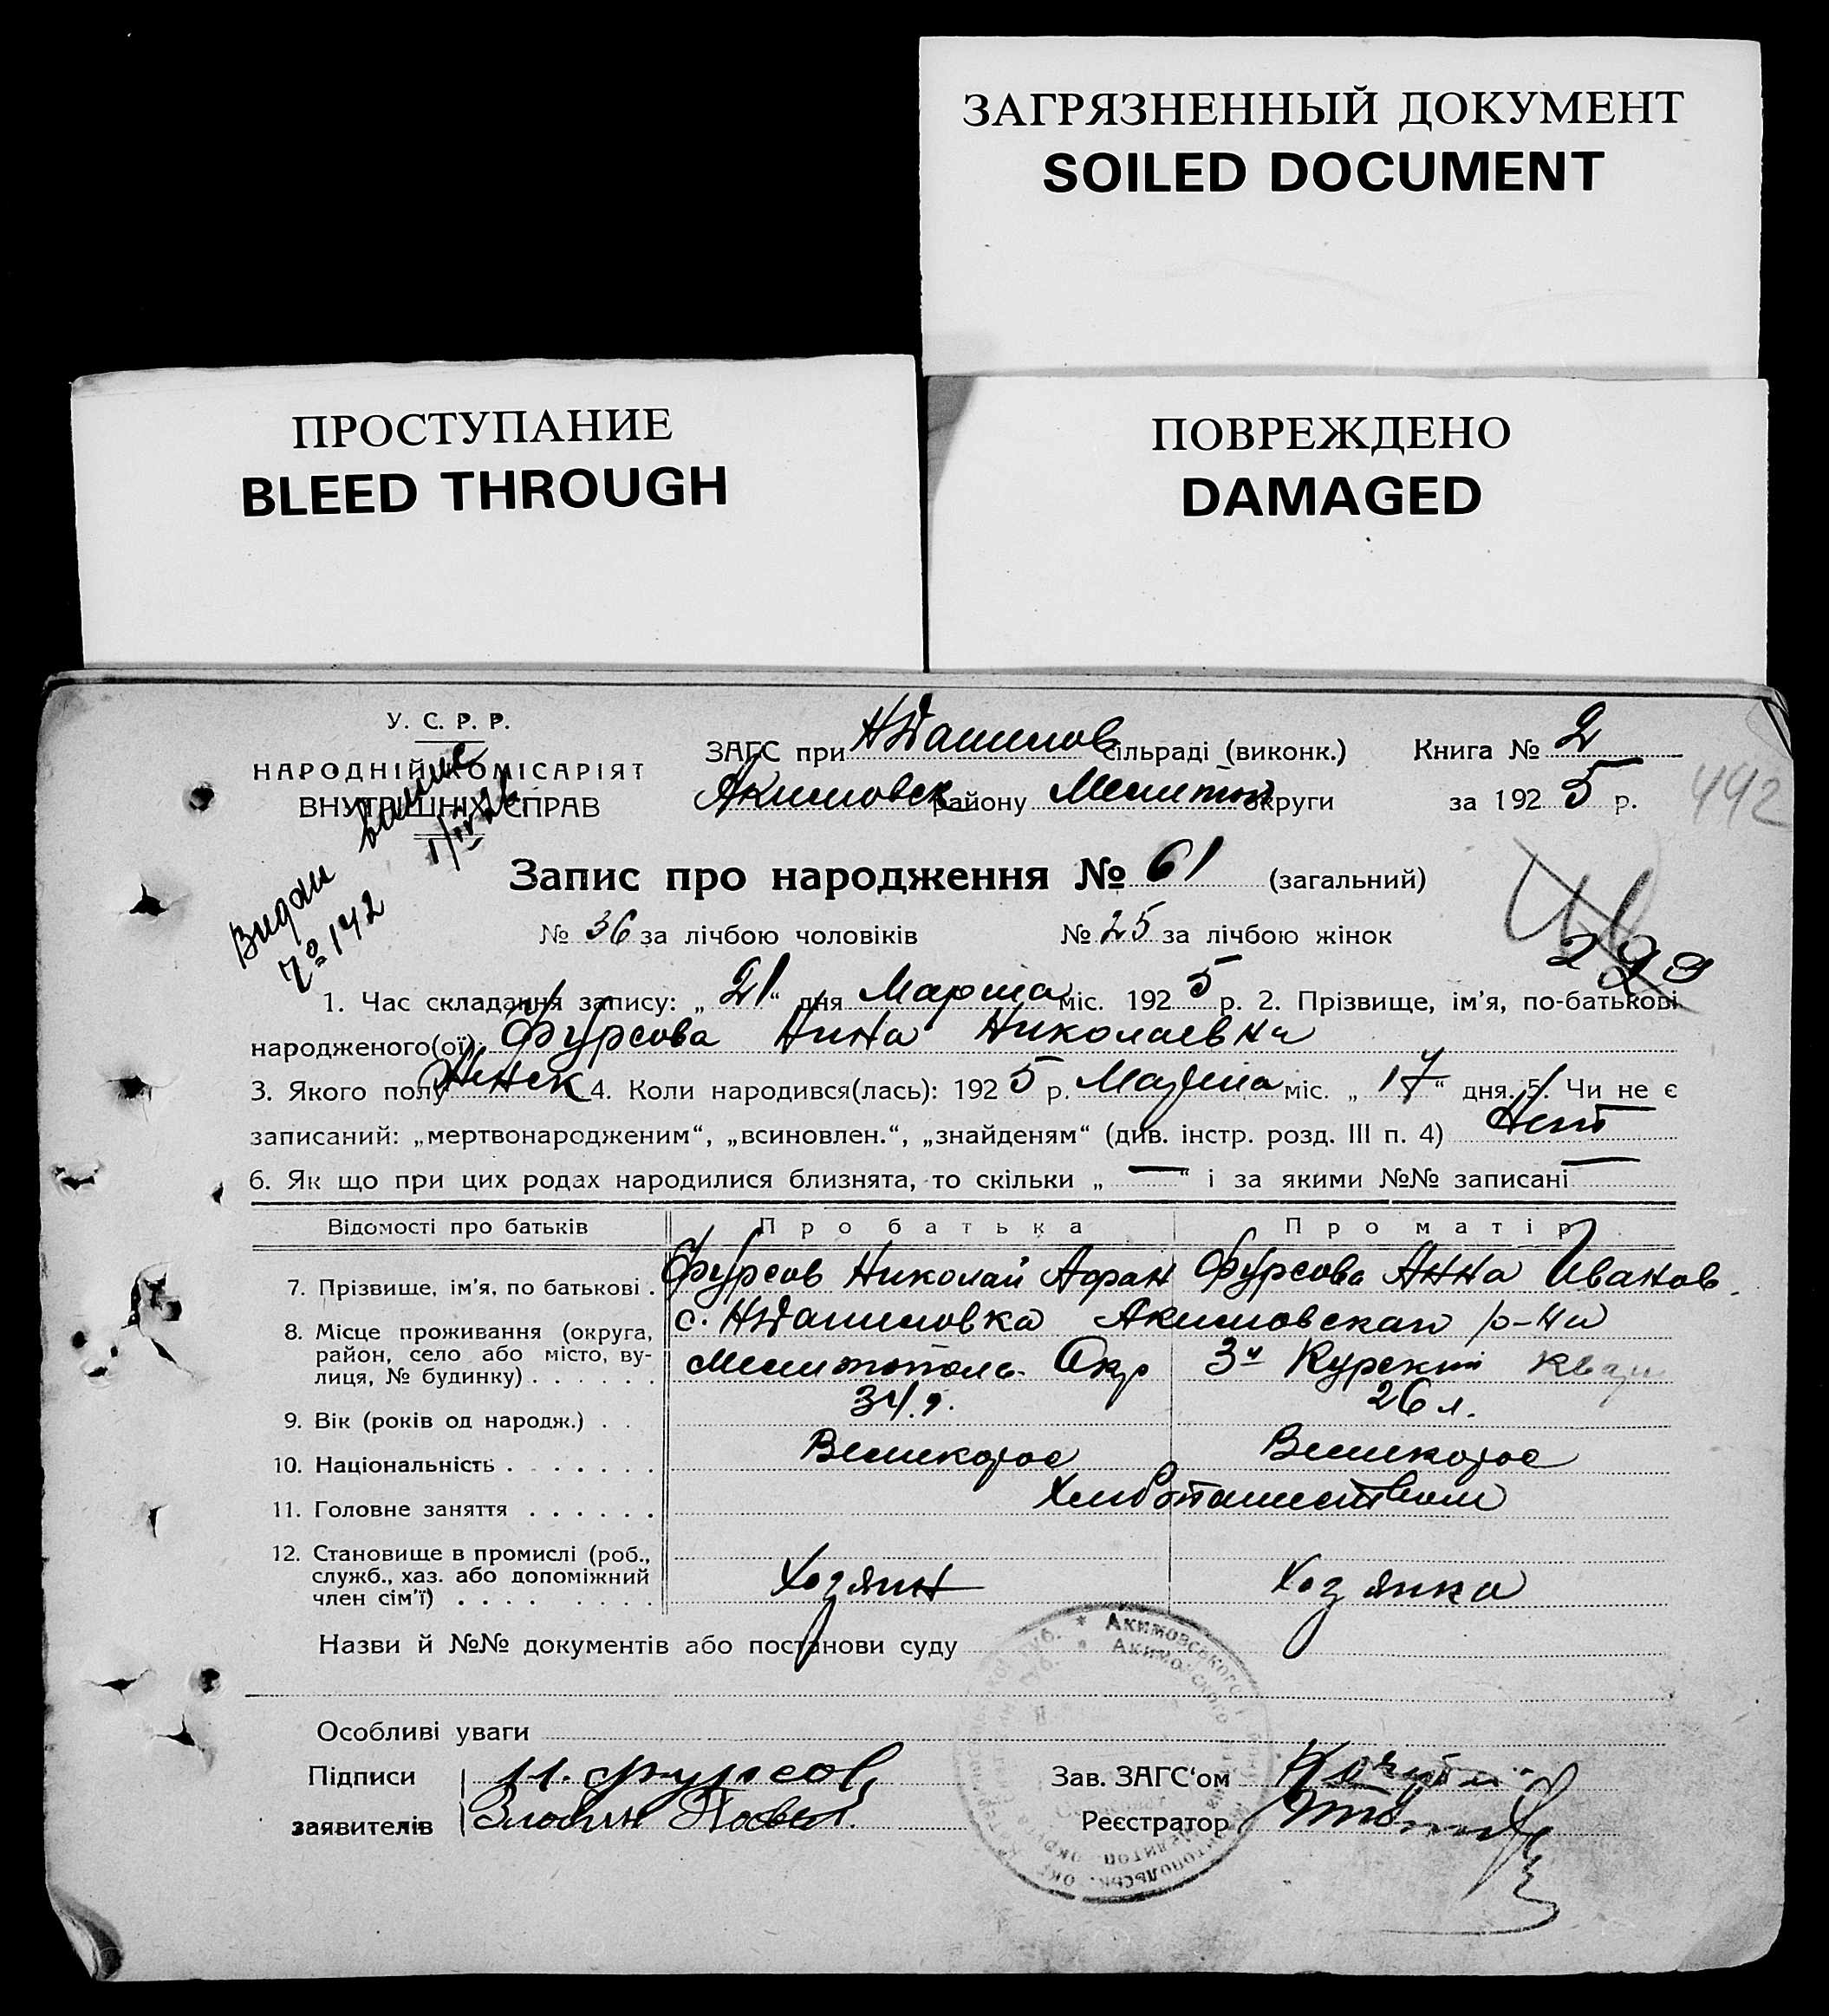 ЗАГРЯЗНЕННЫЙ ДОКУМЕНТ
SOILED DOCUMENT
ПРОСТУПАНИЕ
BLEED THROUGH
ПОВРЕЖДЕНО
DAMAGED
У. С. Р. Р.
НАРОДНІЙ КОМІСАРІЯТ
ВНУТРІШНІХ СПРАВ
ЗАГС при Н Данилов сільраді (виконк.) Книга № 2
Акимовск району Мелитоп округи за 1925 р.
442
Видан
№ 142
Запис про народження № 61 (загальний)
№ 36 за лічбою чоловіків № 25 за лічбою жінок
1. Час складання запису: „21“ дня Марта міс. 1925 р. 2. Прізвище, ім’я, по-батькові
народженого(ої): Фурсова Нина Николаевна
3. Якого полу Женск 4. Коли народився(лась): 1925 р. Марта міс. „17“ дня. 5. Чи не є
записаний: „мертвонародженим“, „всиновлен.“, „знайденям“ (див. інстр. розд. III п. 4) Нет
6. Як що при цих родах народилися близнята, то скільки „—“ і за якими №№ записані —
Відомості про батьків Про батька Про матір
7. Прізвище, ім’я, по батькові . Фурсов Николай Афан Фурсова Анна Иванов.
8. Місце проживання (округа, с. Н Даниловка Акимовскаго р-на
район, село або місто, ву-
лиця, № будинку) . . . . . . Мелитополь Окр 3й Курский
9. Вік (років од народж.) . . 34. 26 л.
10. Національність . . . . . . . Великорос Великорос
11. Головне заняття . . . . . . Хлебопашеством
12. Становище в промислі (роб.,
служб., хаз. або допоміжний Хозяин Хозянка
член сім’ї) . . . . . . . .
Назви й №№ документів або постанови суду
Особливі уваги
Підписи Н. Фурсов Зав. ЗАГС‘ом
заявителів Злобин Павел. Реєстратор